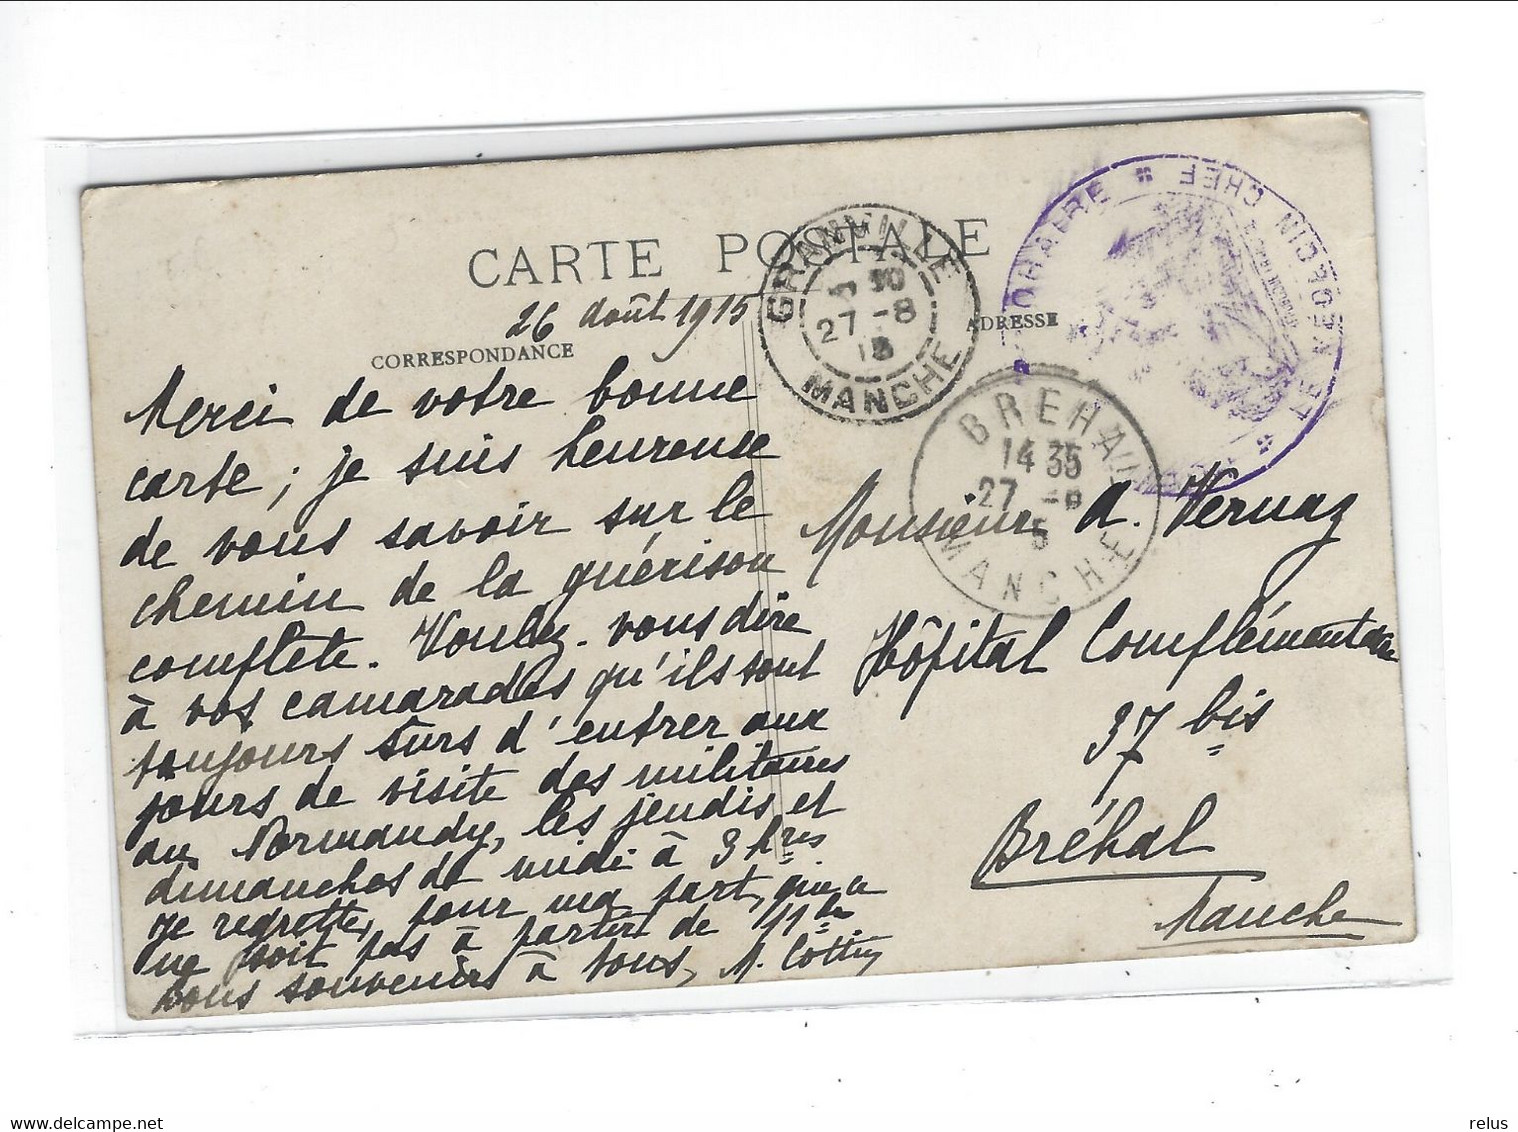 CARTE POSTALE
CORRESPONDANCE
ADRESSE
26 août 1915
Merci de votre bonne
carte ; je suis heureuse
de vous savoir sur le
chemin de la guérison
complète. Voulez-vous dire
à vos camarades qu'ils sont
toujours sûrs d'entrer aux
jours de visite des militaires
au Normandy, les jeudis et
dimanches de midi à 3 hres
Je regrette, pour ma part, que ce
ne soit pas à partir de 11 h
bons souvenirs à tous, M. Cottin
GRANVILLE
30
27 -8
15
MANCHE
BREHAL
14 35
27 -8
5
MANCHE
LE MÉDECIN CHEF
Monsieur A. Vernaz
Hôpital Complémentaire
37 bis
Bréhal
Manche
www.delcampe.net
relus